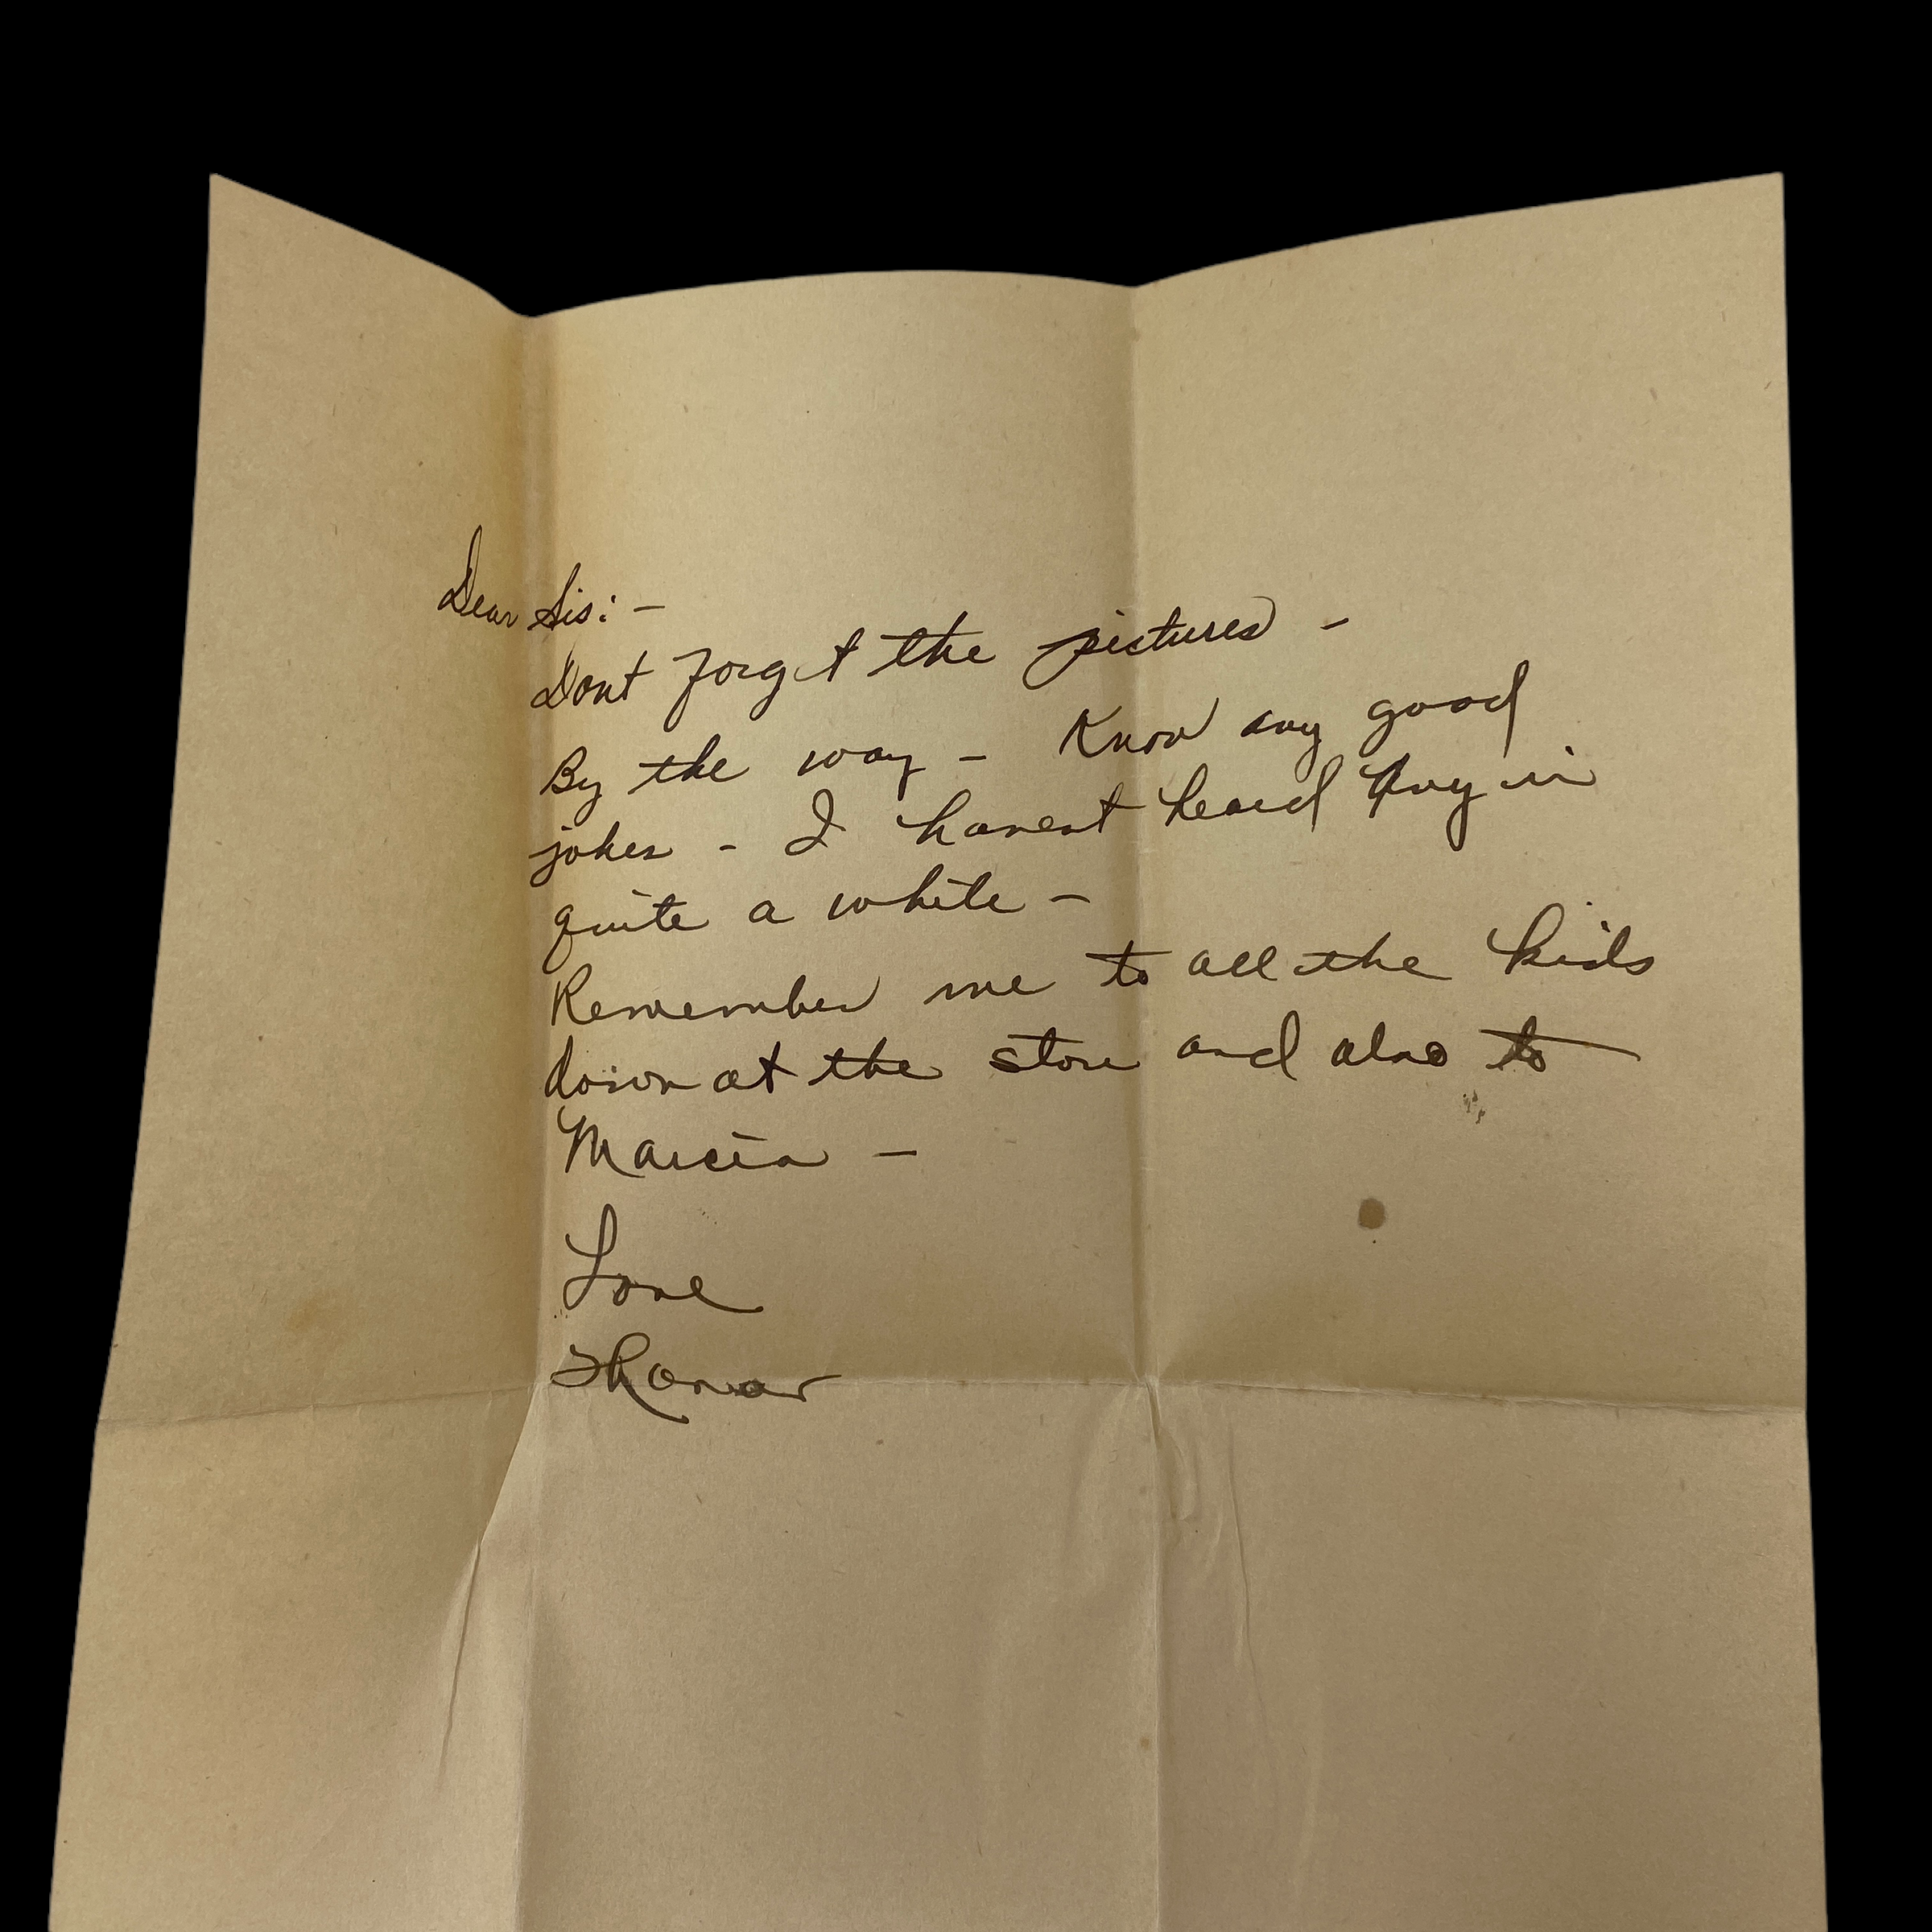 Dear Sis: -
Dont forget the pictures -
By the way - Know any good
jokes - I havent heard any in
quite a while -
Remember me to all the kids
down at the store and also to
Marcia -
Love